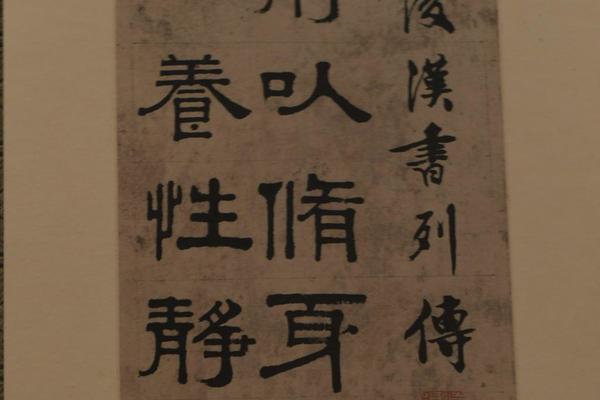 後漢書列傳
以脩身
養性靜